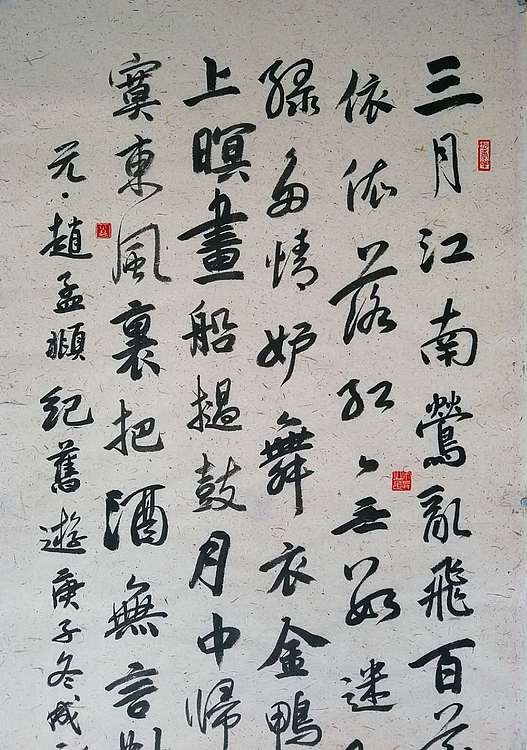 三月江南鶯亂飛百
依依落紅無數迷
綠多情妒舞衣金鴨
上暝畫船撾鼓月中歸
寞東風裏把酒無言
元·趙孟頫紀舊遊庚子冬